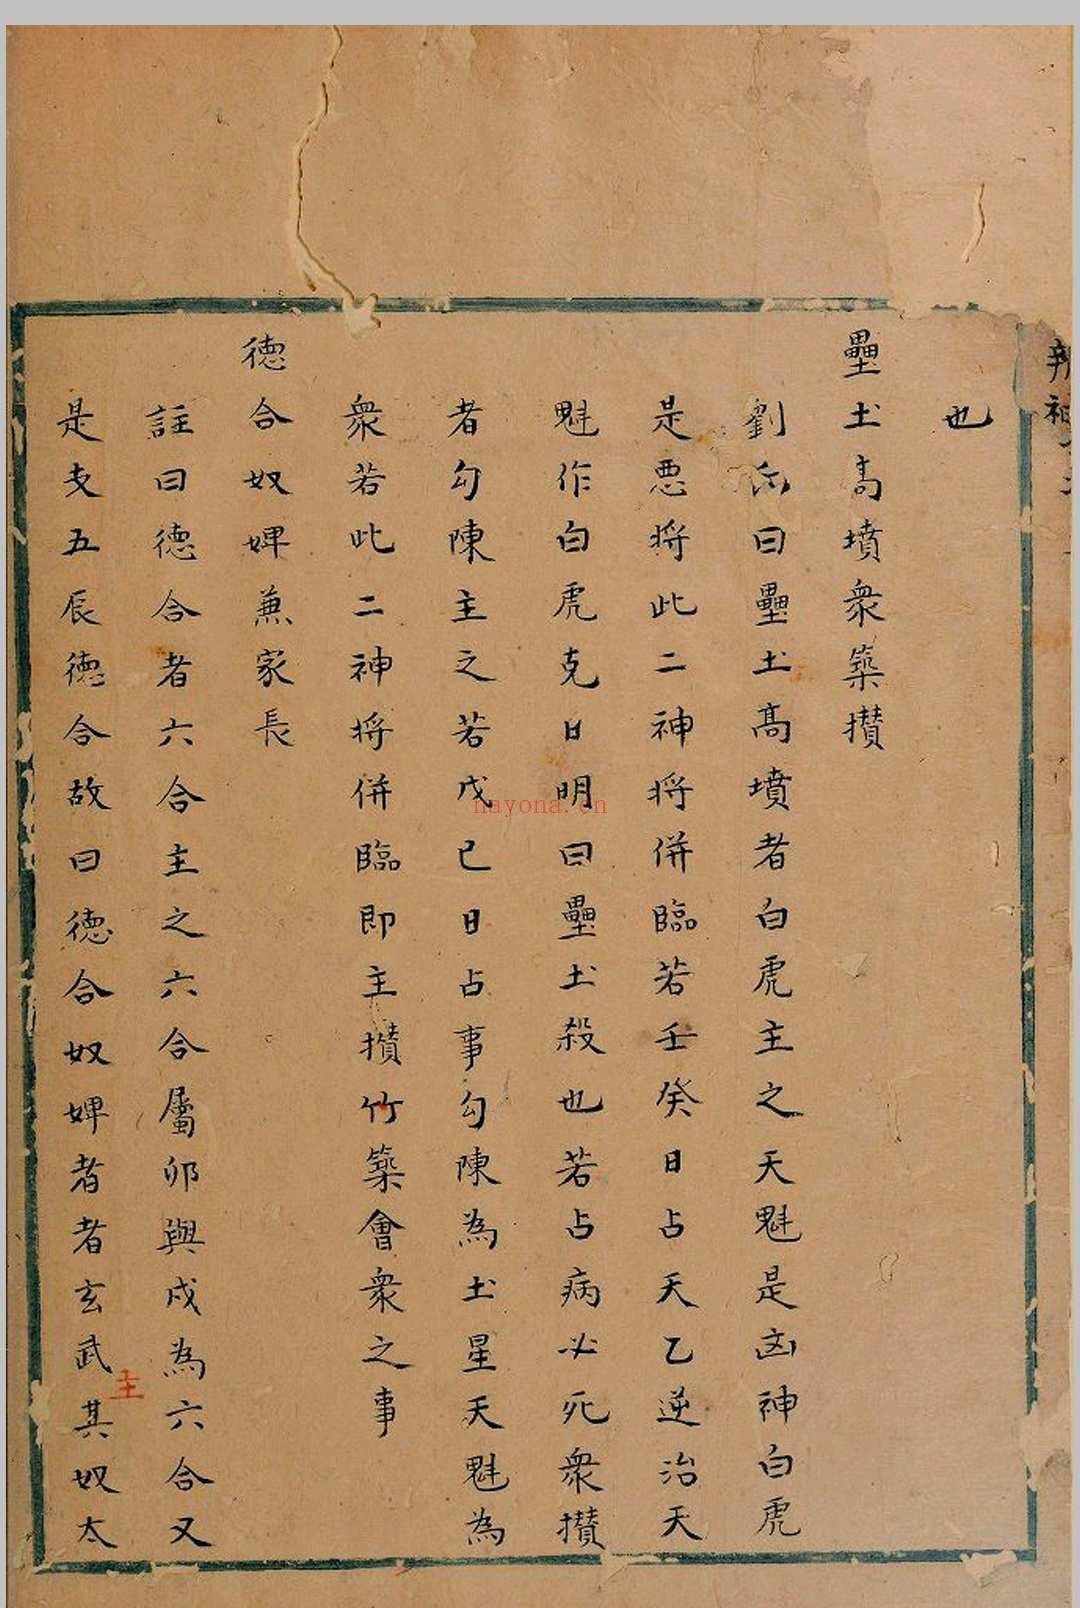 也
壘土高墳衆築攅
劉氏曰壘土高墳者白虎主之天魁是凶神白虎
是悪将此二神将併臨若壬癸日占天乙逆治天
魁作白虎克日明曰壘土殺也若占病必死衆攅
者勾陳主之若戊已日占事勾陳為土星天魁為
衆若此二神将併臨即主攅竹築會衆之事
德合奴婢兼家長
註曰德合者六合主之六合屬卯與戌為六合又
是支五辰德合故曰德合奴婢者者玄武其奴太
主
nayona.cn